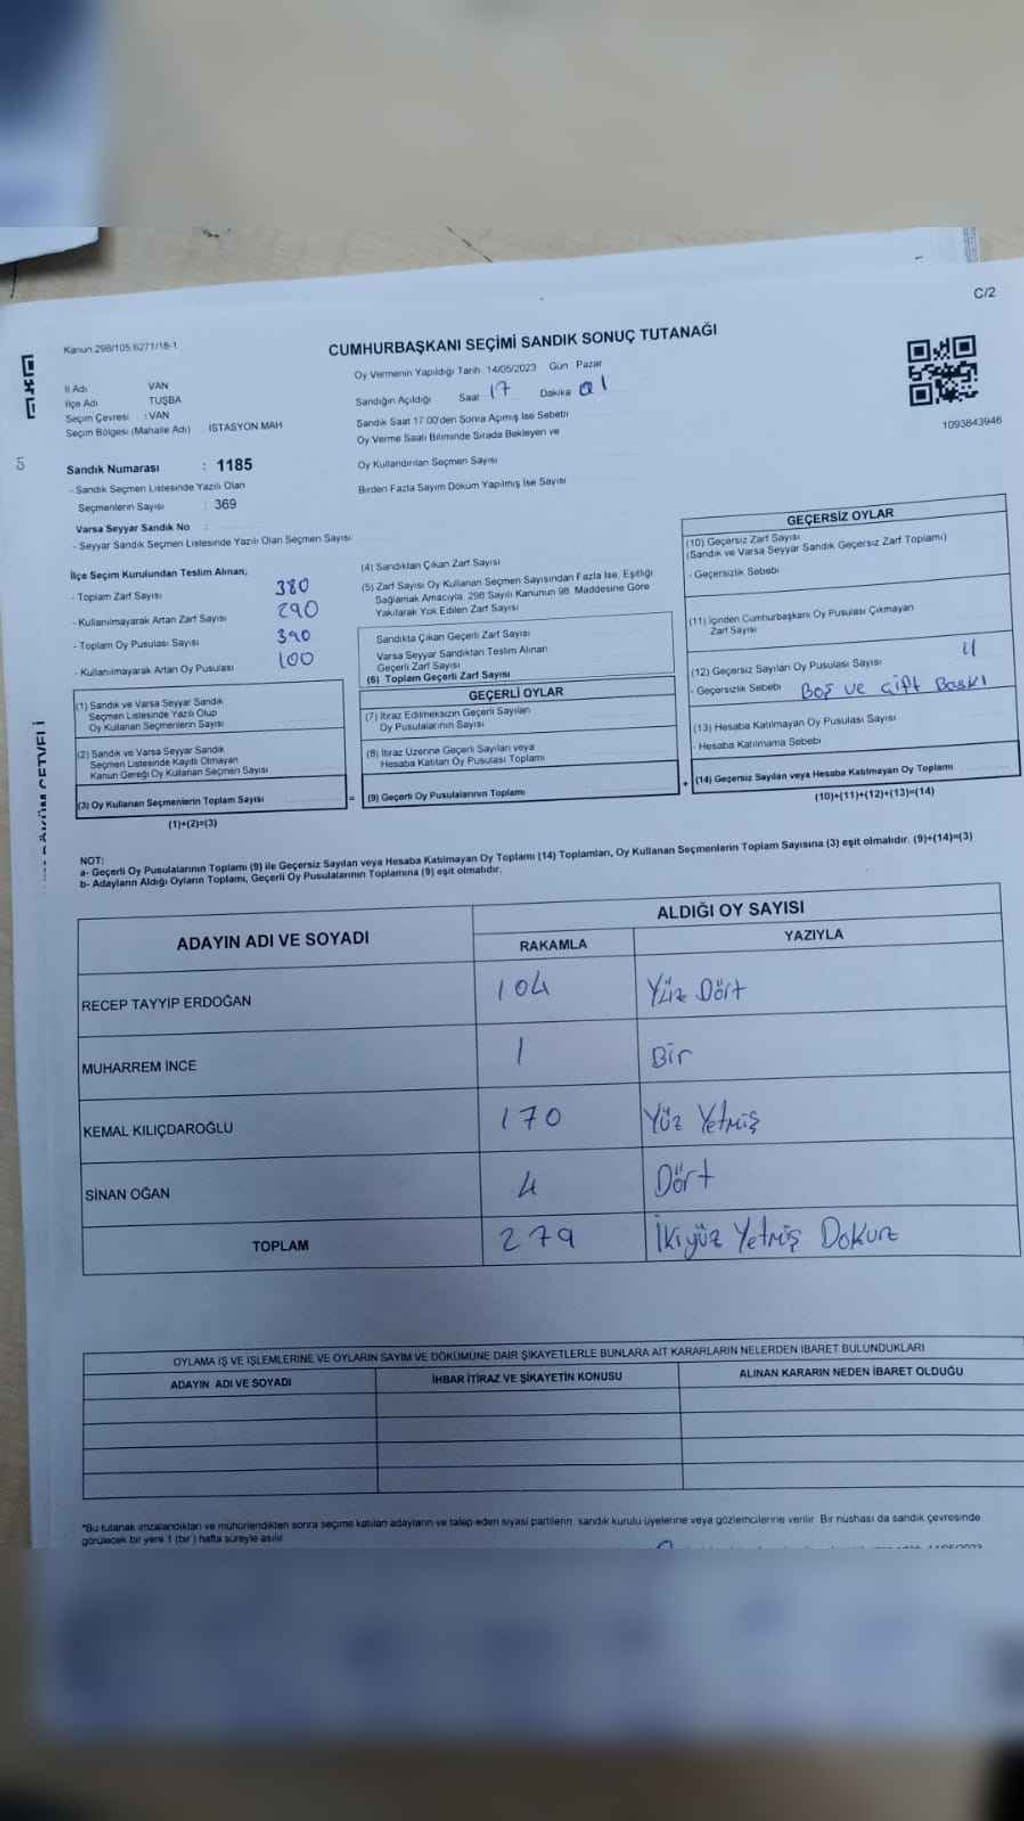 C/2
Kanun 298/105 6271/18-1
CUMHURBAŞKANI SEÇİMİ SANDIK SONUÇ TUTANAĞI
Oy Vermenin Yapıldığı Tarih 14/05/2023 Gün Pazar
İl Adı VAN
İlçe Adı TUŞBA
Seçim Çevresi : VAN
Seçim Bölgesi (Mahalle Adı) İSTASYON MAH
Sandığın Açıldığı Saat 17 Dakika 01
Sandık Saat 17:00'den Sonra Açımış İse Sebebi
Oy Verme Saati Bitiminde Sırada Bekleyen ve
Oy Kullandırılan Seçmen Sayısı
Birden Fazla Sayım Döküm Yapılmış İse Sayısı
1093843946
5
Sandık Numarası : 1185
- Sandık Seçmen Listesinde Yazılı Olan
Seçmenlerin Sayısı : 369
Varsa Seyyar Sandık No :
- Seyyar Sandık Seçmen Listesinde Yazılı Olan Seçmen Sayısı
İlçe Seçim Kurulundan Teslim Alınan;
- Toplam Zarf Sayısı 380
- Kullanılmayarak Artan Zarf Sayısı 290
- Toplam Oy Pusulası Sayısı 390
- Kullanılmayarak Artan Oy Pusulası 100
(1) Sandık ve Varsa Seyyar Sandık
Seçmen Listesinde Yazılı Olup
Oy Kullanan Seçmenlerin Sayısı
(2) Sandık ve Varsa Seyyar Sandık
Seçmen Listesinde Kayıtlı Olmayan
Kanun Gereği Oy Kullanan Seçmen Sayısı
(3) Oy Kullanan Seçmenlerin Toplam Sayısı
(1)+(2)=(3)
(4) Sandıktan Çıkan Zarf Sayısı
(5) Zarf Sayısı Oy Kullanan Seçmen Sayısından Fazla İse, Eşitliği
Sağlamak Amacıyla, 298 Sayılı Kanunun 98. Maddesine Göre
Yakılarak Yok Edilen Zarf Sayısı
Sandıkta Çıkan Geçerli Zarf Sayısı
Varsa Seyyar Sandıktan Teslim Alınan
Geçerli Zarf Sayısı
(6) Toplam Geçerli Zarf Sayısı
GEÇERLİ OYLAR
(7) İtiraz Edilmeksizin Geçerli Sayılan
Oy Pusulalarının Sayısı
(8) İtiraz Üzerine Geçerli Sayılan veya
Hesaba Katılan Oy Pusulası Toplamı
= (9) Geçerli Oy Pusulalarının Toplamı
GEÇERSİZ OYLAR
(10) Geçersiz Zarf Sayısı
(Sandık ve Varsa Seyyar Sandık Geçersiz Zarf Toplamı)
- Geçersizlik Sebebi
(11) İçinden Cumhurbaşkanı Oy Pusulası Çıkmayan
Zarf Sayısı
(12) Geçersiz Sayılan Oy Pusulası Sayısı 11
- Geçersizlik Sebebi Boş ve çift Baskı
(13) Hesaba Katılmayan Oy Pusulası Sayısı
- Hesaba Katılmama Sebebi
+ (14) Geçersiz Sayılan veya Hesaba Katılmayan Oy Toplamı
(10)+(11)+(12)+(13)=(14)
NOT:
a- Geçerli Oy Pusulalarının Toplamı (9) ile Geçersiz Sayılan veya Hesaba Katılmayan Oy Toplamı (14) Toplamları, Oy Kullanan Seçmenlerin Toplam Sayısına (3) eşit olmalıdır. (9)+(14)=(3)
b- Adayların Aldığı Oyların Toplamı, Geçerli Oy Pusulalarının Toplamına (9) eşit olmalıdır.
ADAYIN ADI VE SOYADI
ALDIĞI OY SAYISI
RAKAMLA YAZIYLA
RECEP TAYYİP ERDOĞAN 104 Yüz Dört
MUHARREM İNCE 1 Bir
KEMAL KILIÇDAROĞLU 170 Yüz Yetmiş
SİNAN OĞAN 4 Dört
TOPLAM 279 İkiyüz Yetmiş Dokuz
OYLAMA İŞ VE İŞLEMLERİNE VE OYLARIN SAYIM VE DÖKÜMÜNE DAİR ŞİKAYETLERLE BUNLARA AİT KARARLARIN NELERDEN İBARET BULUNDUKLARI
ADAYIN ADI VE SOYADI İHBAR İTİRAZ VE ŞİKAYETİN KONUSU ALINAN KARARIN NEDEN İBARET OLDUĞU
*Bu tutanak imzalandıktan ve mühürlendikten sonra seçime katılan adayların ve talep eden siyasi partilerin sandık kurulu üyelerine veya gözlemcilerine verilir. Bir nüshası da sandık çevresinde
görülecek bir yere 1 (bir) hafta süreyle asılır.